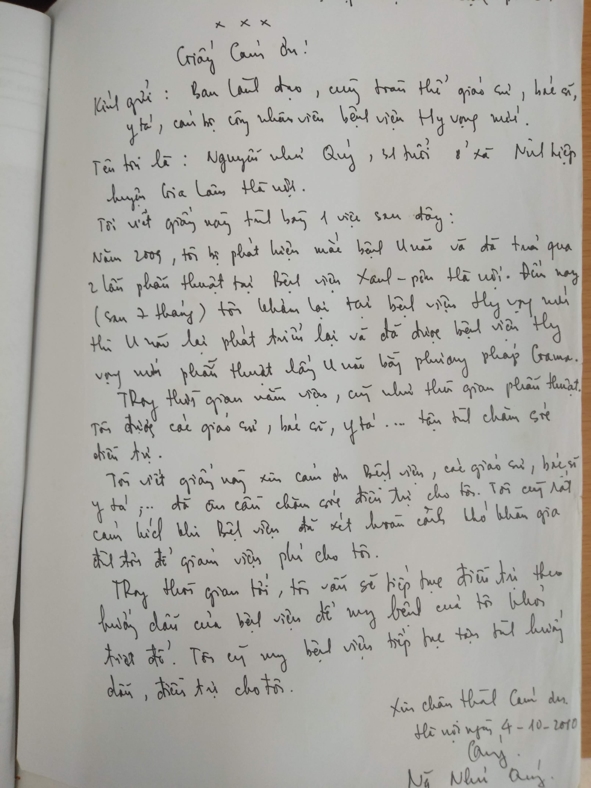 x x x
Giấy Cám ơn!
Kính gửi: Ban lãnh đạo, cùng toàn thể giáo sư, bác sĩ,
y tá, cán bộ công nhân viên bệnh viện Hy vọng mới.
Tên tôi là: Nguyễn Như Quý, 51 tuổi ở xã Ninh Hiệp
huyện Gia Lâm Hà nội.
Tôi viết giấy này trình bày 1 việc sau đây:
Năm 2009, tôi bị phát hiện mắc bệnh U não và đã trải qua
2 lần phẫu thuật tại Bệnh viện Xanh-pôn Hà nội. Đến nay
(sau 7 tháng) tôi khám lại tại bệnh viện Hy vọng mới
thì U não lại phát triển lại và đã được bệnh viện Hy
vọng mới phẫu thuật lấy U não bằng phương pháp Gama.
Trong thời gian nằm viện, cũng như thời gian phẫu thuật.
Tôi được các giáo sư, bác sĩ, y tá... tận tình chăm sóc
điều trị.
Tôi viết giấy này xin cám ơn Bệnh viện, các giáo sư, bác sĩ
y tá,... đã ân cần chăm sóc điều trị cho tôi. Tôi cũng rất
cảm kích khi Bệnh viện đã xét hoàn cảnh khó khăn gia
đình tôi để giảm viện phí cho tôi.
Trong thời gian tới, tôi vẫn sẽ tiếp tục điều trị theo
hướng dẫn của bệnh viện để mong bệnh của tôi khỏi
triệt để. Tôi cũng mong bệnh viện tiếp tục tận tình hướng
dẫn, điều trị cho tôi.
Xin chân thành Cám ơn
Hà nội ngày 4-10-2010
Quý.
Ng Như Quý.